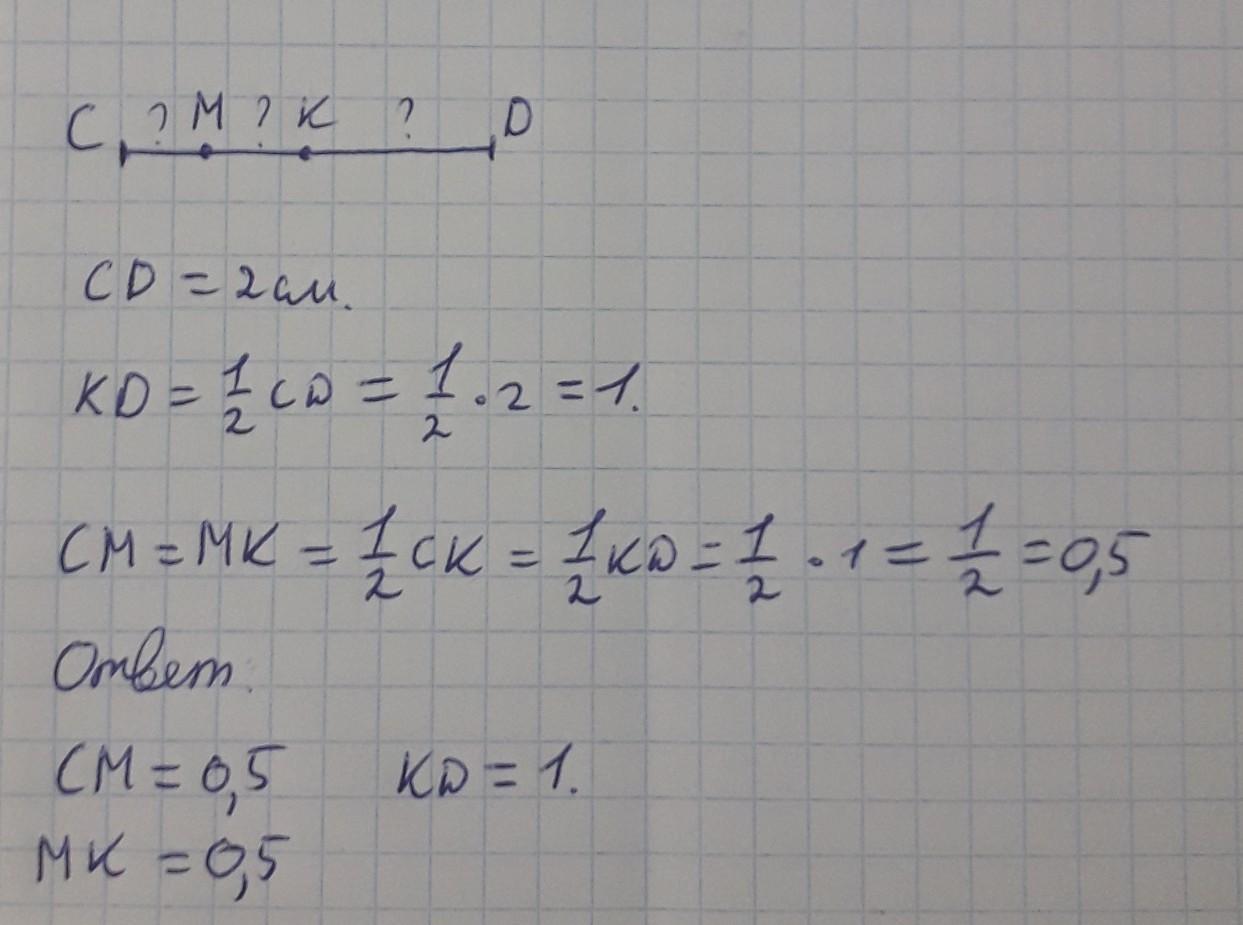 C ? М ? К ? D
CD = 2 см.
KD = 1/2 CD = 1/2 · 2 = 1.
CM = MK = 1/2 CK = 1/2 KD = 1/2 · 1 = 1/2 = 0,5
Ответ.
CM = 0,5 KD = 1.
MK = 0,5